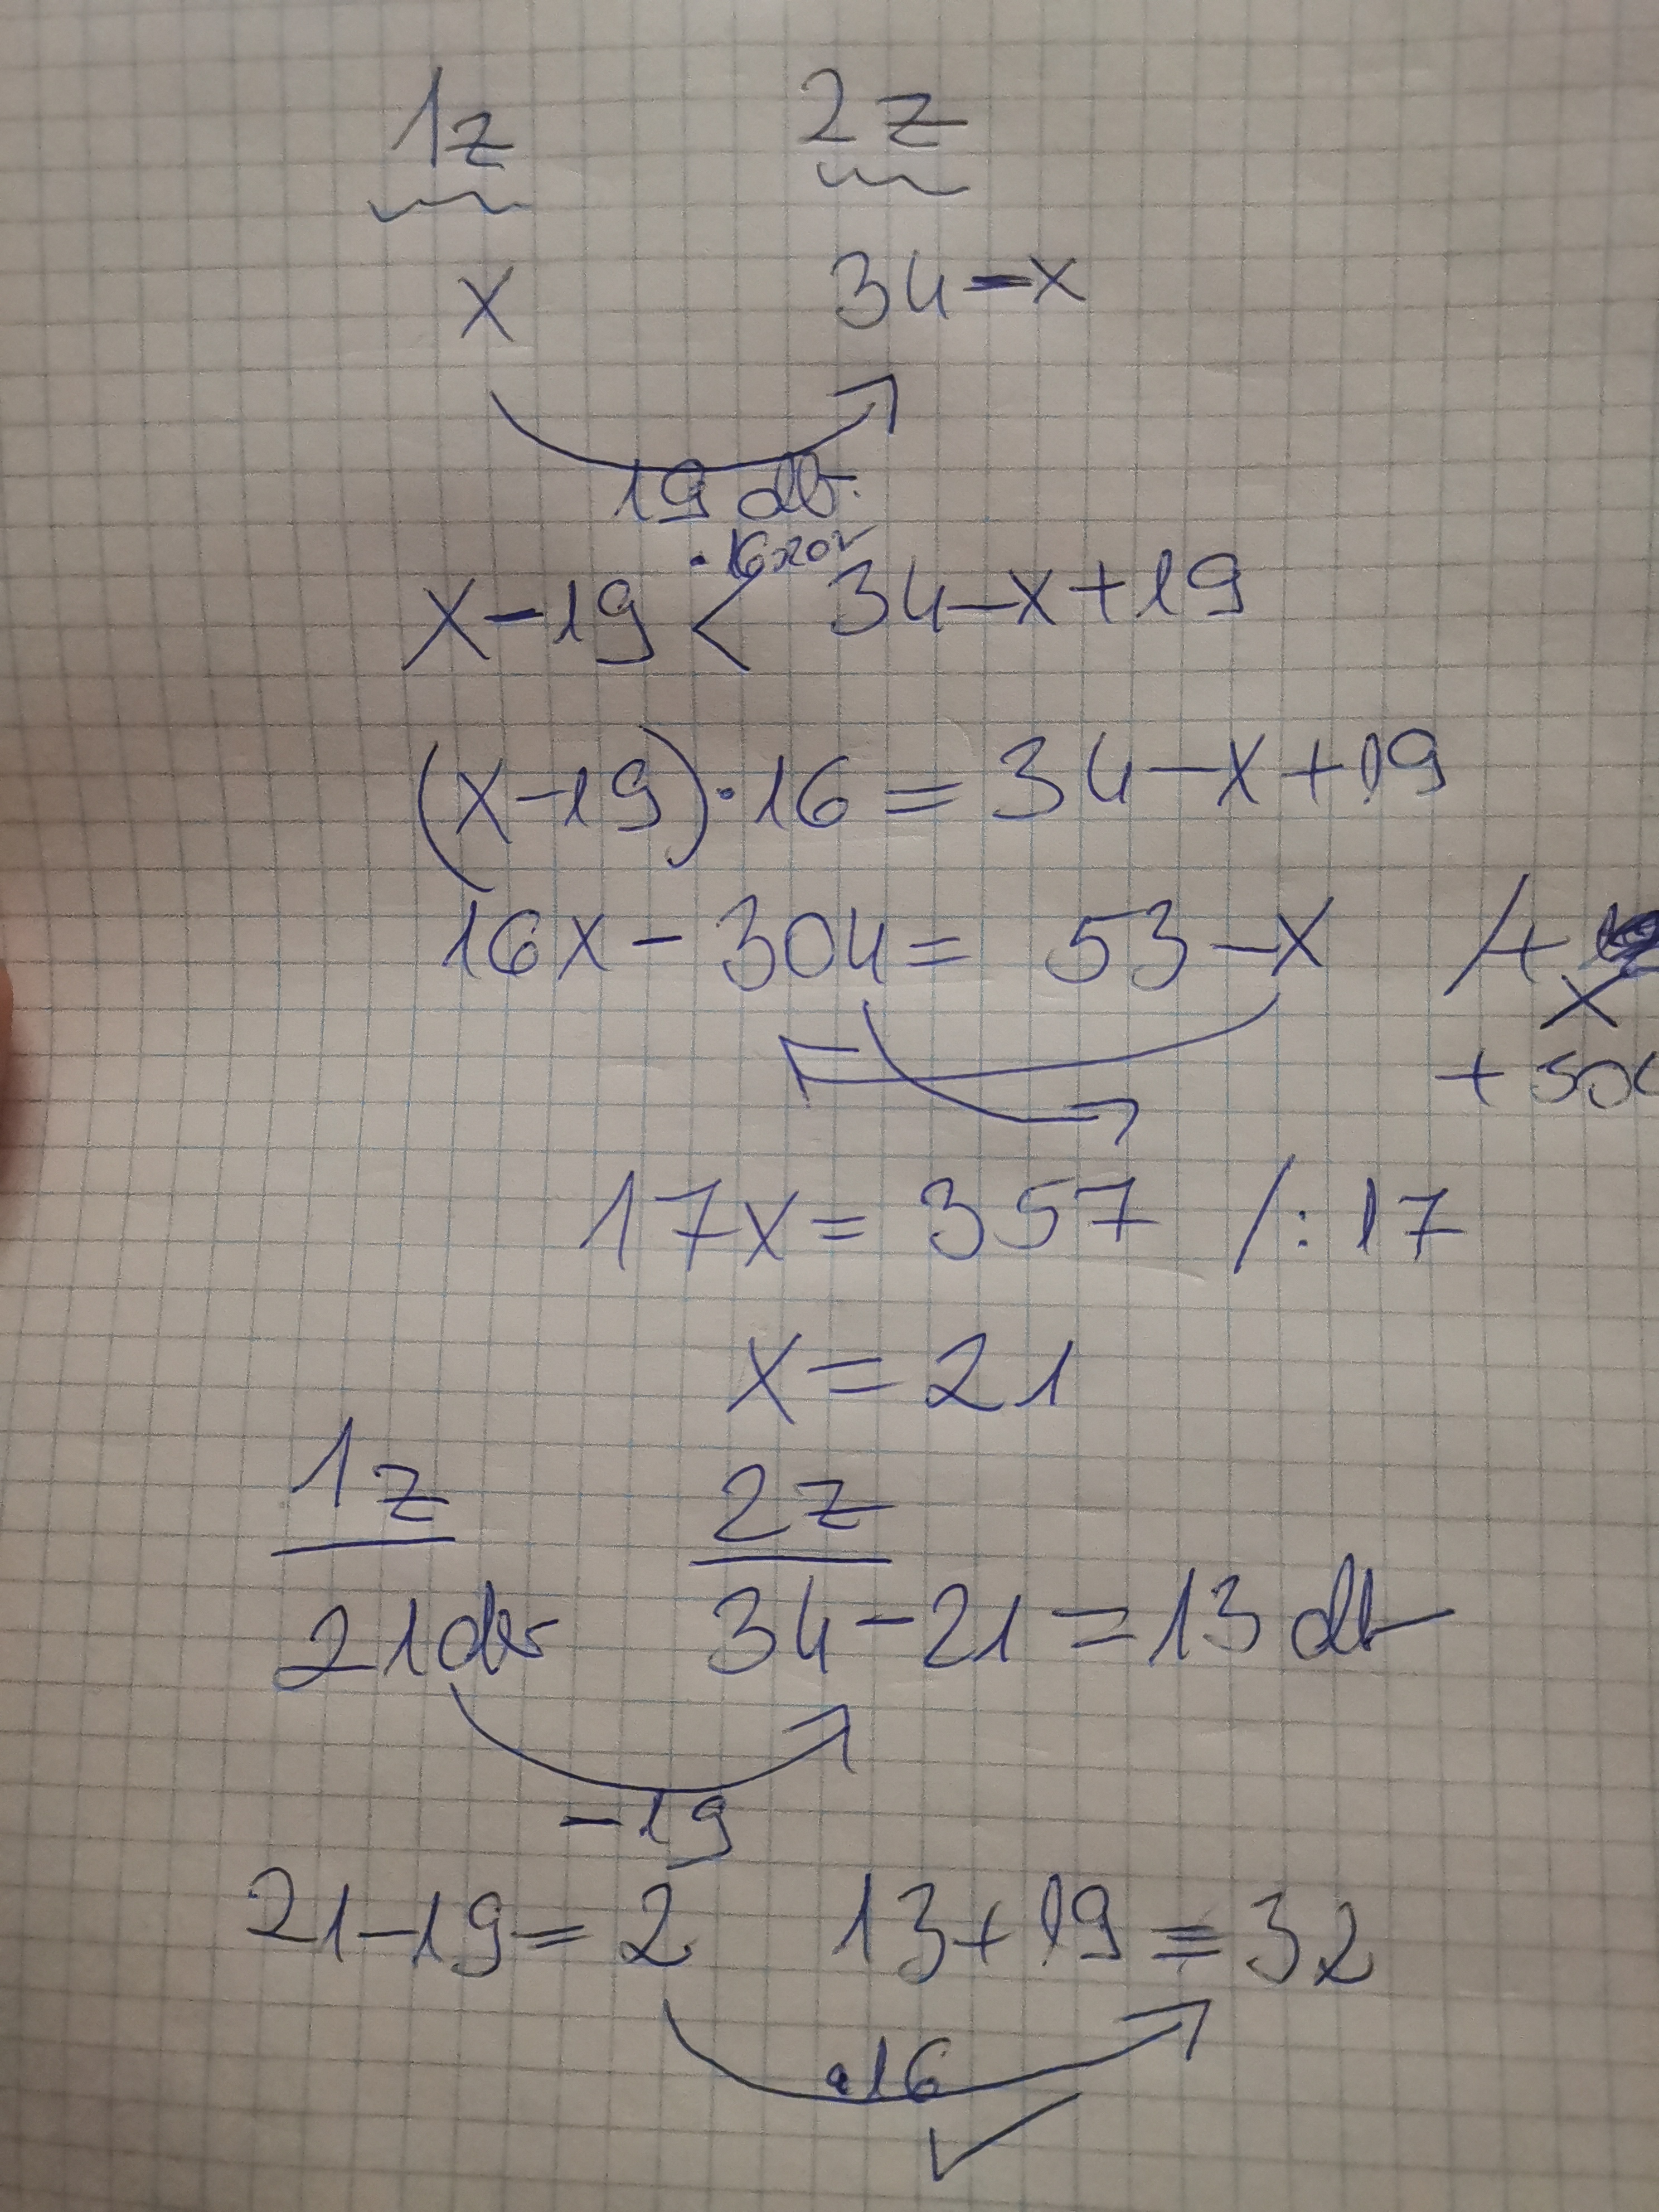 1z 2z
x 34-x
19 db.
·16szor
x-19 < 34-x+19
(x-19)·16=34-x+19
16x-304= 53-x /+
x
+ 30
17x= 357 /:17
x=21
1z 2z
21db 34-21=13db
-19
21-19=2 13+19=32
·16
✓